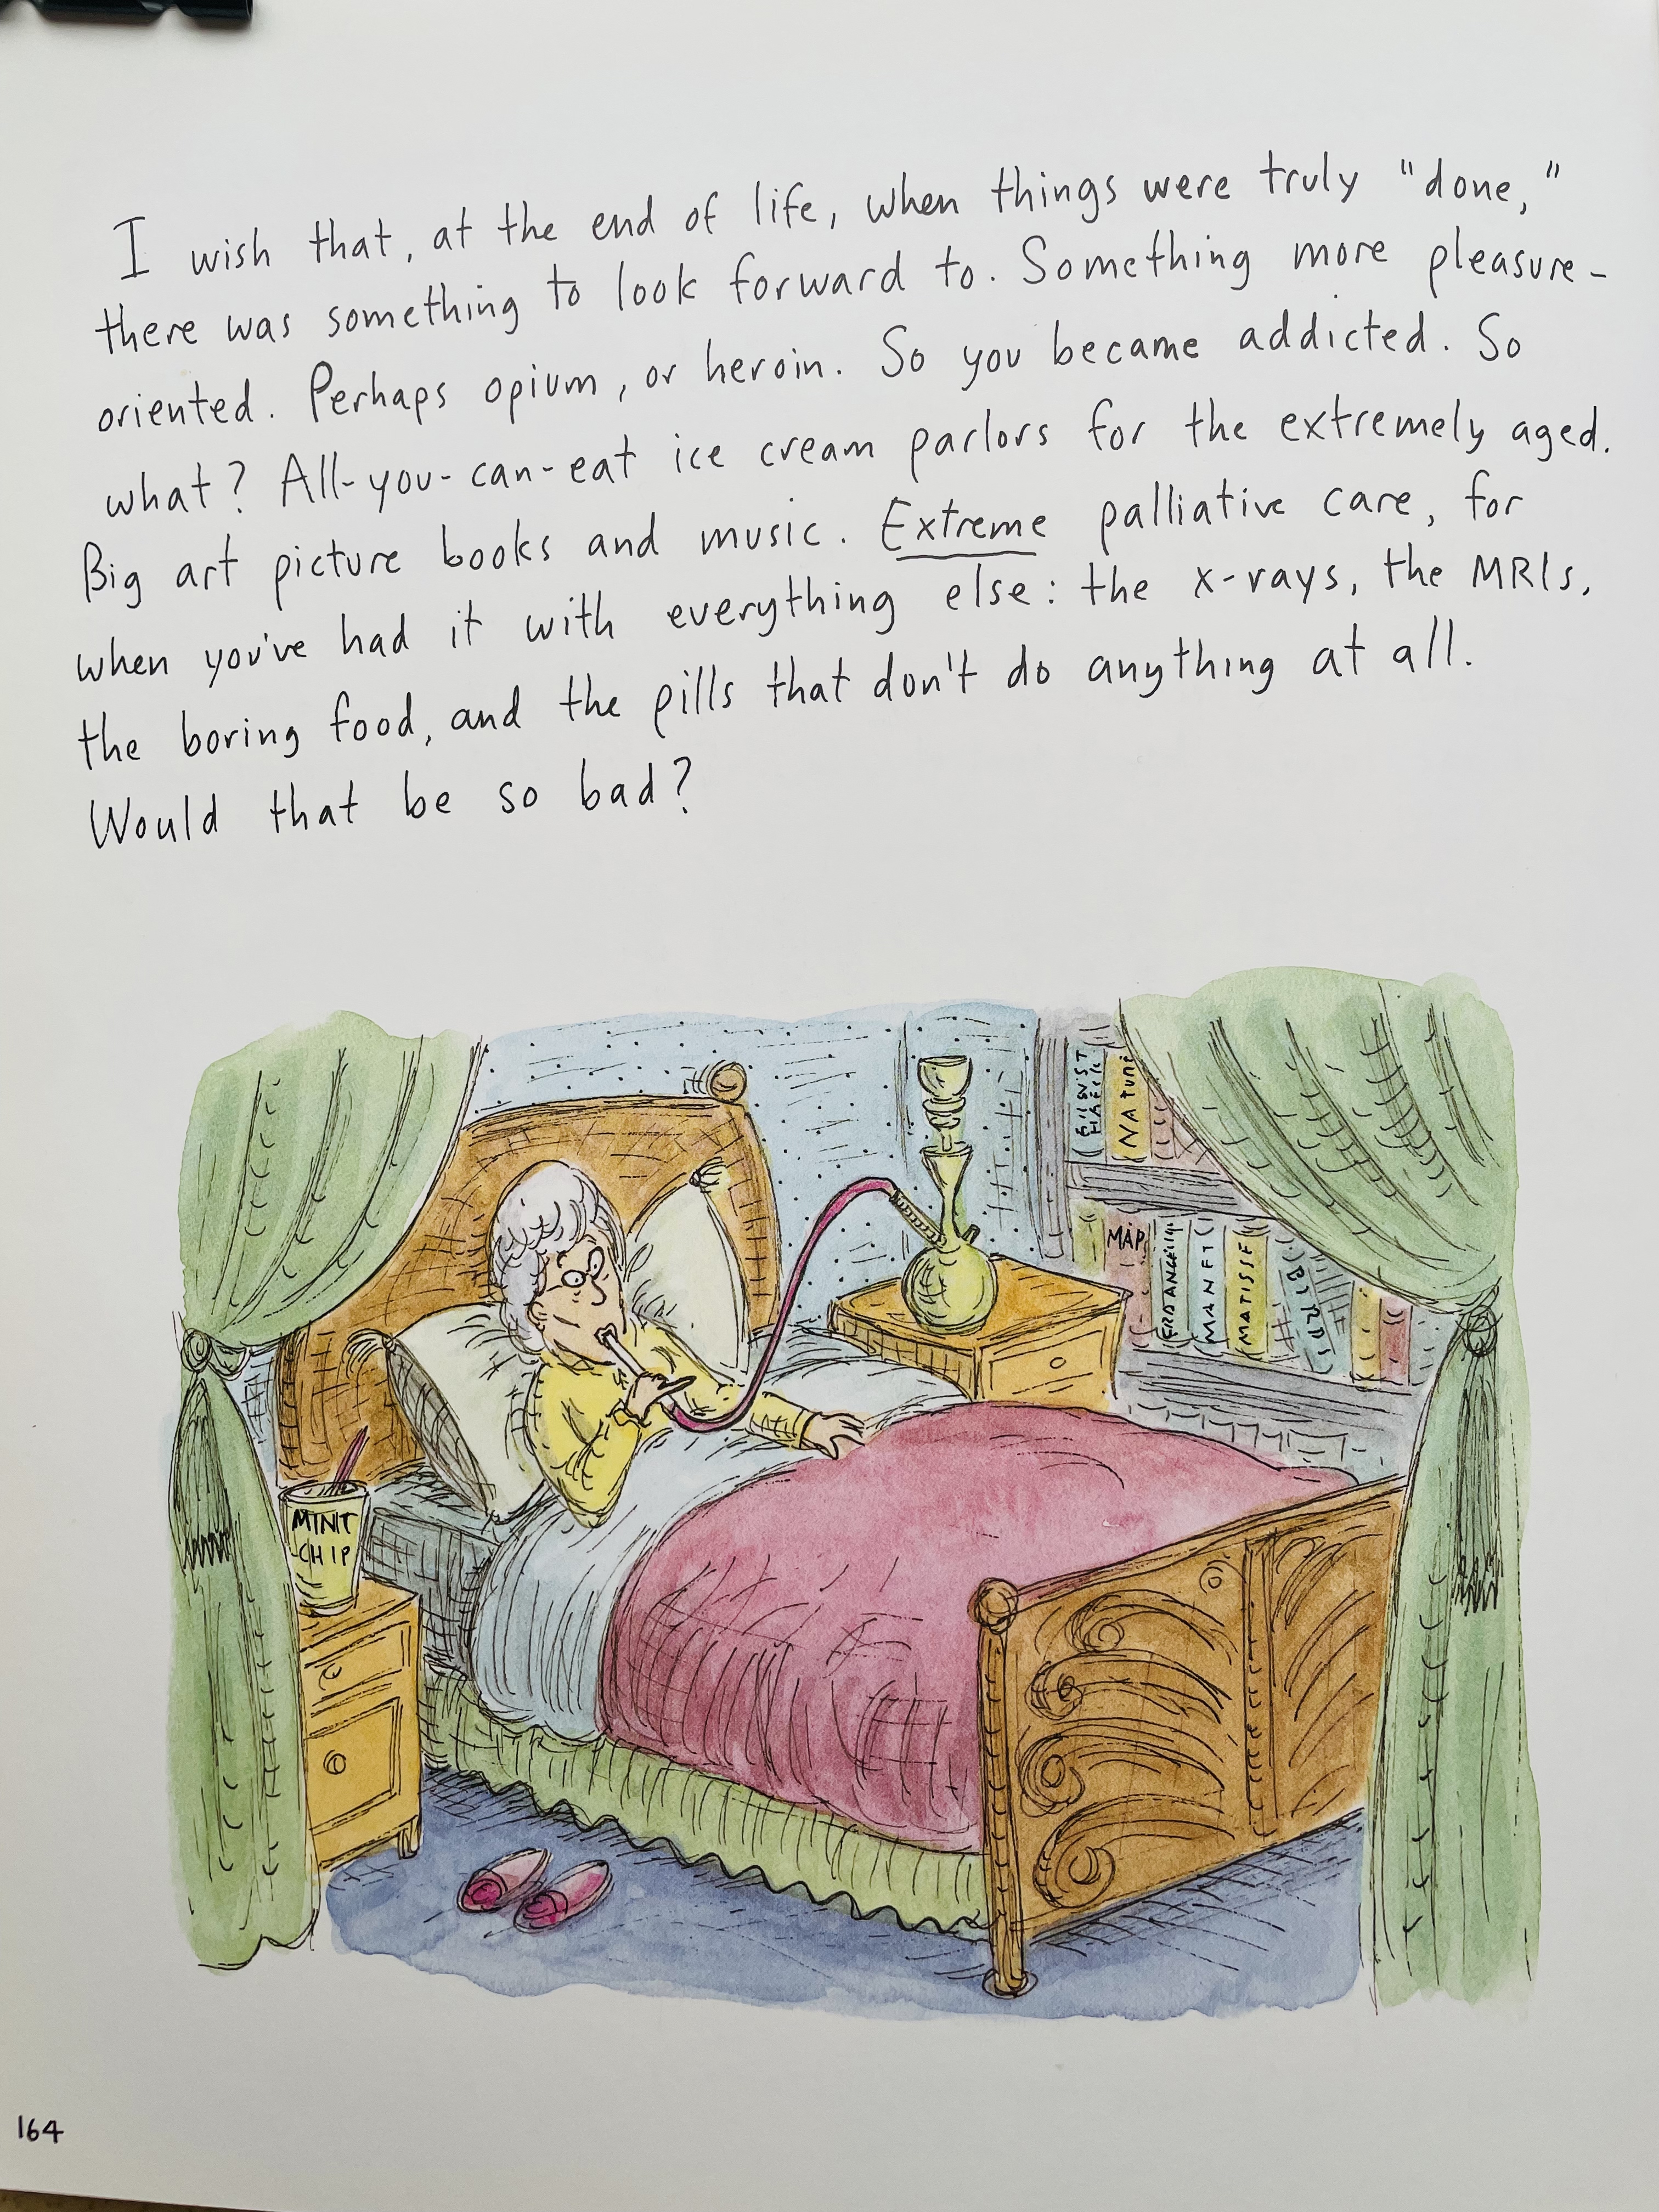 I wish that, at the end of life, when things were truly "done,"
there was something to look forward to. Something more pleasure-
oriented. Perhaps opium, or heroin. So you became addicted. So
what? All-you-can-eat ice cream parlors for the extremely aged.
Big art picture books and music. Extreme palliative care, for
when you've had it with everything else: the x-rays, the MRIs,
the boring food, and the pills that don't do anything at all.
Would that be so bad?
NATURE
MAP
MANET
MATISSE
MINT
CHIP
164